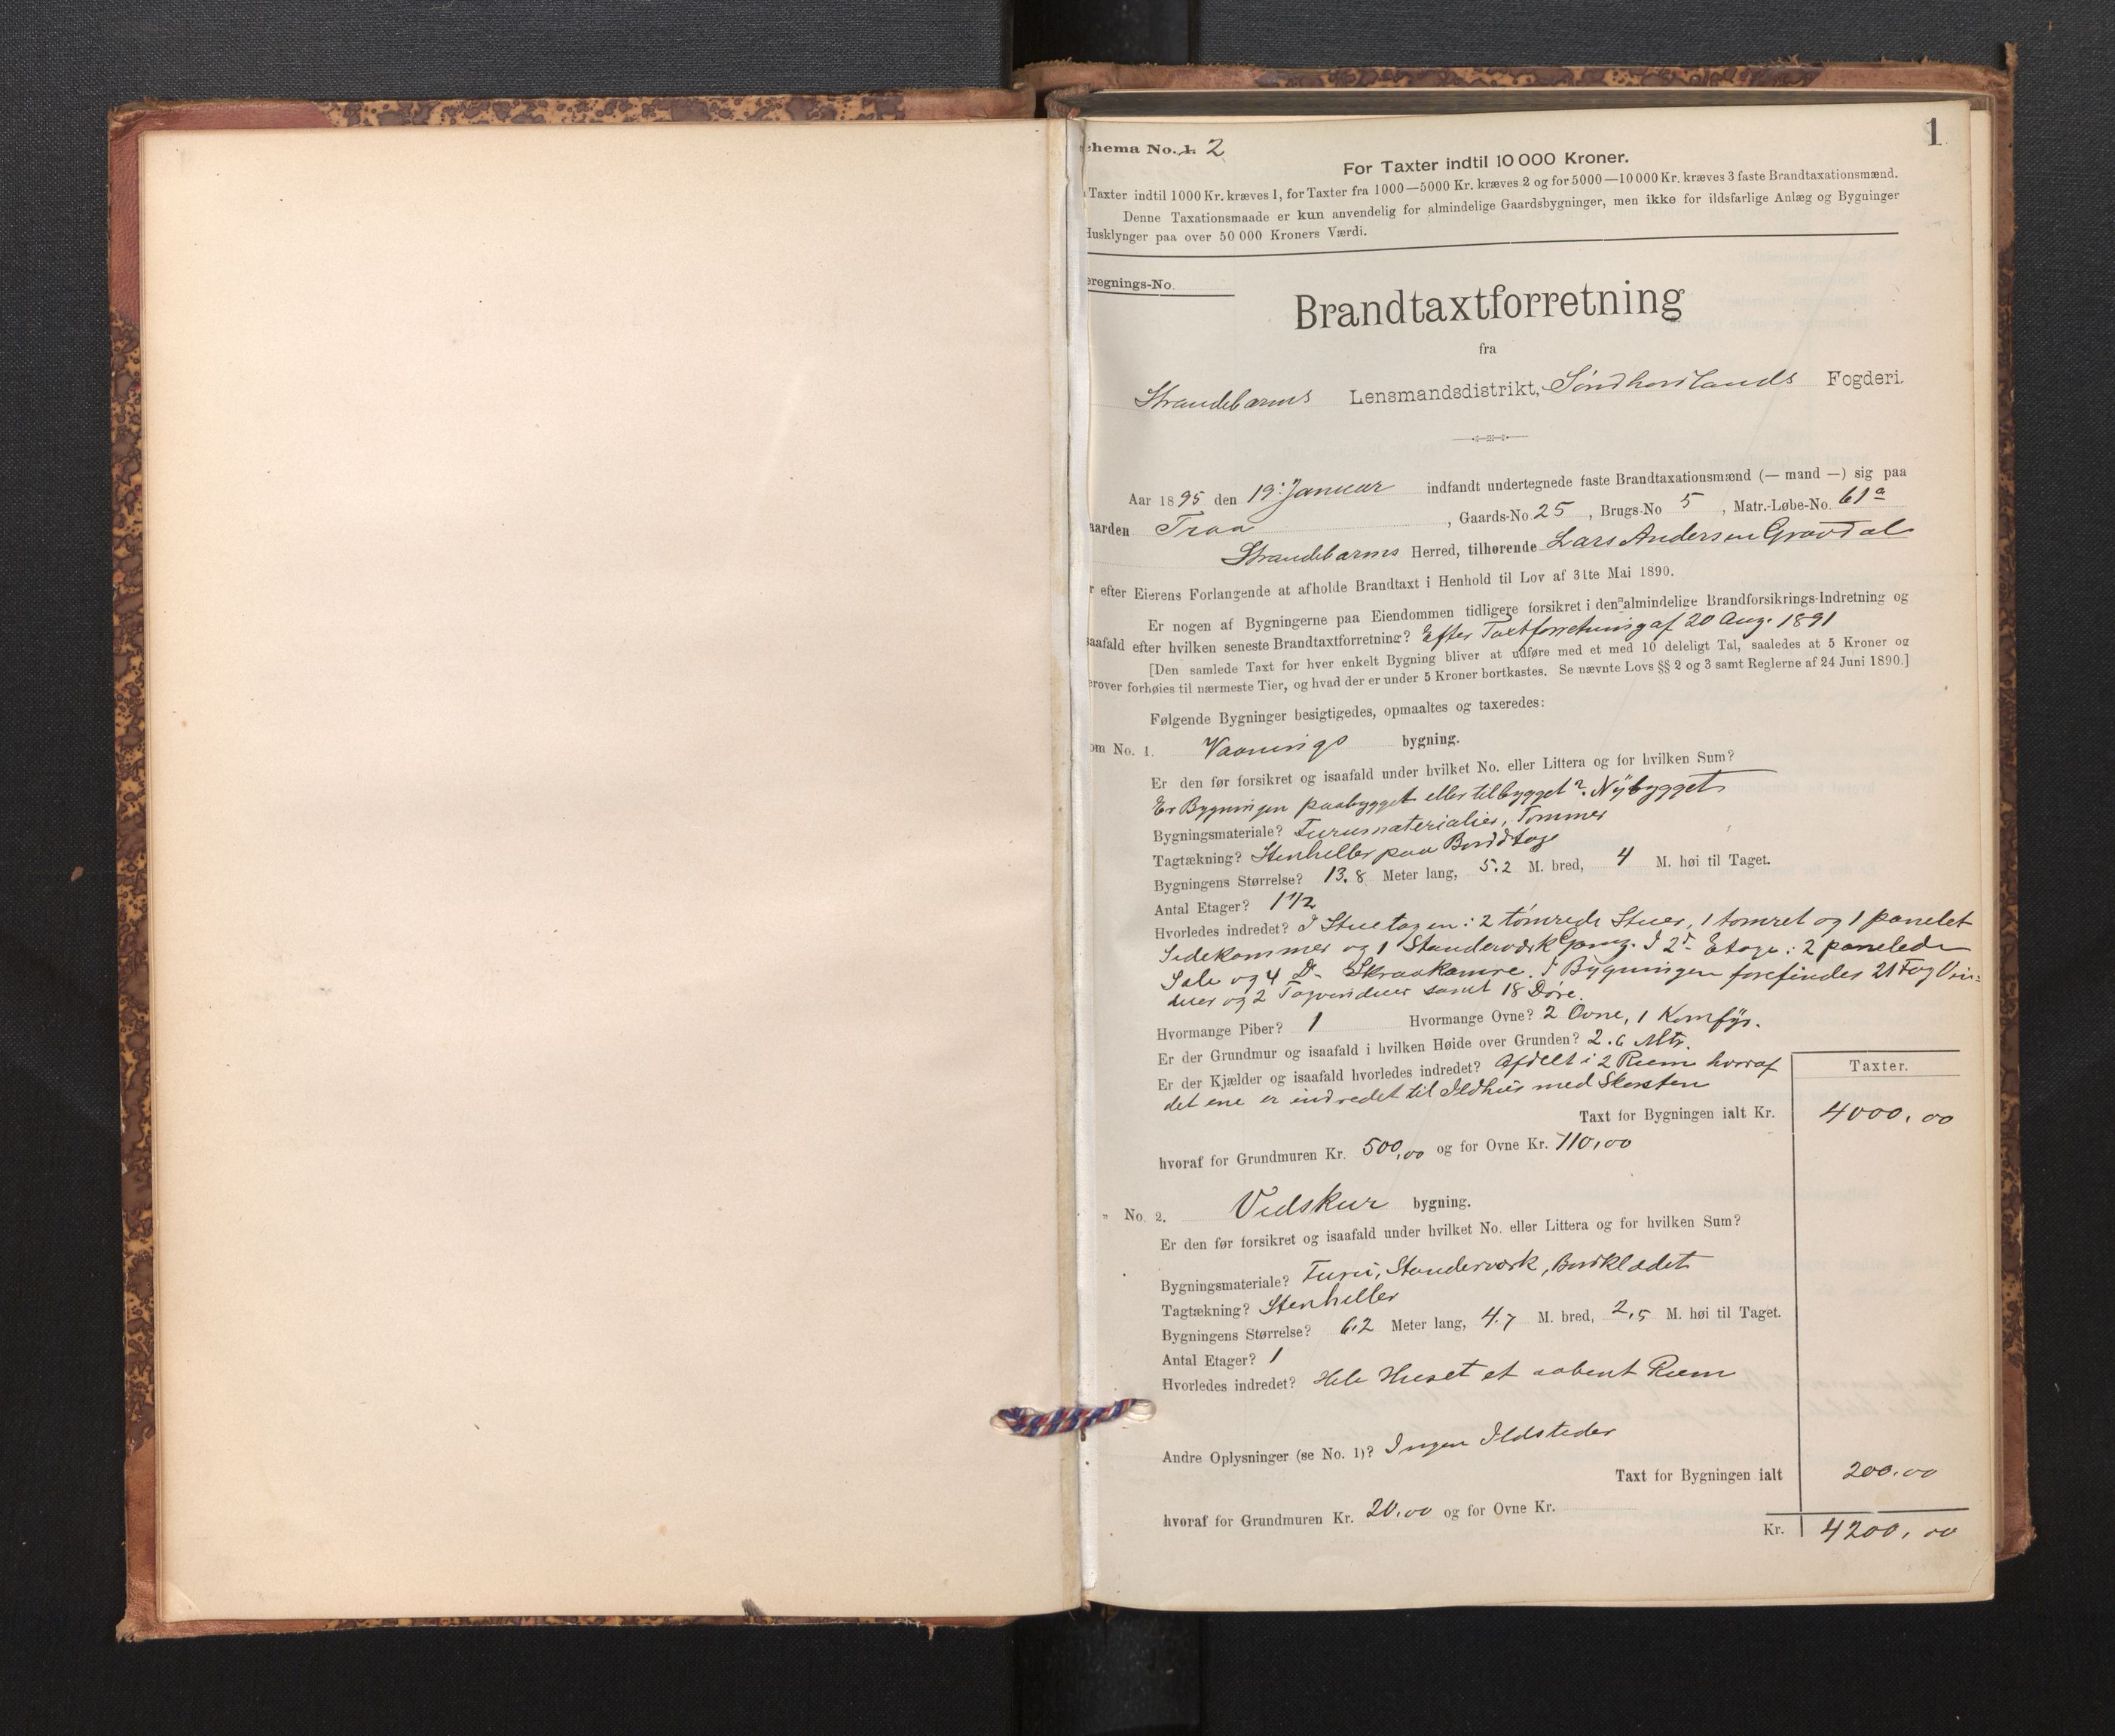 1
chema No. 1. 2
For Taxter indtil 10 000 Kroner.
Taxter indtil 1000 Kr. kræves 1, for Taxter fra 1000—5000 Kr. kræves 2 og for 5000—10 000 Kr. kræves 3 faste Brandtaxationsmænd.
Denne Taxationsmaade er kun anvendelig for almindelige Gaardsbygninger, men ikke for ildsfarlige Anlæg og Bygninger
Husklynger paa over 50 000 Kroners Værdi.
eregnings-No.
Brandtaxtforretning
fra
Strandebarms Lensmandsdistrikt, Søndhordlands Fogderi.
Aar 1895 den 19. Januar indfandt undertegnede faste Brandtaxationsmænd (— mand —) sig paa
aarden Traa, Gaards-No 25, Brugs-No 5, Matr.-Løbe-No. 61a
Strandebarms Herred, tilhørende Lars Andersen Gravdal
r efter Eierens Forlangende at afholde Brandtaxt i Henhold til Lov af 31te Mai 1890.
Er nogen af Bygningerne paa Eiendommen tidligere forsikret i den almindelige Brandforsikrings-Indretning og
saafald efter hvilken seneste Brandtaxtforretning? Efter Taxtforretning af 20 Aug. 1891
[Den samlede Taxt for hver enkelt Bygning bliver at udføre med et med 10 deleligt Tal, saaledes at 5 Kroner og
erover forhøies til nærmeste Tier, og hvad der er under 5 Kroner bortkastes. Se nævnte Lovs §§ 2 og 3 samt Reglerne af 24 Juni 1890.]
Følgende Bygninger besigtigedes, opmaaltes og taxeredes:
om No. 1. Vaanings bygning.
Er den før forsikret og isaafald under hvilket No. eller Littera og for hvilken Sum?
Er Bygningen paabygget eller tilbygget? Nybygget
Bygningsmateriale? Furumaterialier, Tømmer
Tagtækning? Stenheller paa Bordtag
Bygningens Størrelse? 13.8 Meter lang, 5.2 M. bred, 4 M. høi til Taget.
Antal Etager? 1 1/2
Hvorledes indredet? I Stuetagen: 2 tømrede Stuer, 1 tømret og 1 panelet
Sidekammer og 1 Standerværk Gang. I 2d Etage: 2 panelede
Sale og 4 Do Skraakamre. I Bygningen forefindes 21 Fag Vin-
duer og 2 Tagvinduer samt 18 Døre.
Hvormange Piber? 1 Hvormange Ovne? 2 Ovne, 1 Komfyr.
Er der Grundmur og isaafald i hvilken Høide over Grunden? 2.6 Mtr.
Er der Kjælder og isaafald hvorledes indredet? Afdelt i 2 Rum hvoraf
det ene er indredet til Ildhus med Skorsten
Taxter.
Taxt for Bygningen ialt Kr. 4000,00
hvoraf for Grundmuren Kr. 500,00 og for Ovne Kr. 110,00
" No. 2. Vedskur bygning.
Er den før forsikret og isaafald under hvilket No. eller Littera og for hvilken Sum?
Bygningsmateriale? Furu, Standerværk, Bordklædet
Tagtækning? Stenheller
Bygningens Størrelse? 6.2 Meter lang, 4.7 M. bred, 2,5 M. høi til Taget.
Antal Etager? 1
Hvorledes indredet? Hele Huset et aabent Rum
Andre Oplysninger (se No. 1)? Ingen Ildsteder
Taxt for Bygningen ialt 200.00
hvoraf for Grundmuren Kr. 20.00 og for Ovne Kr.
Kr. 4200,00